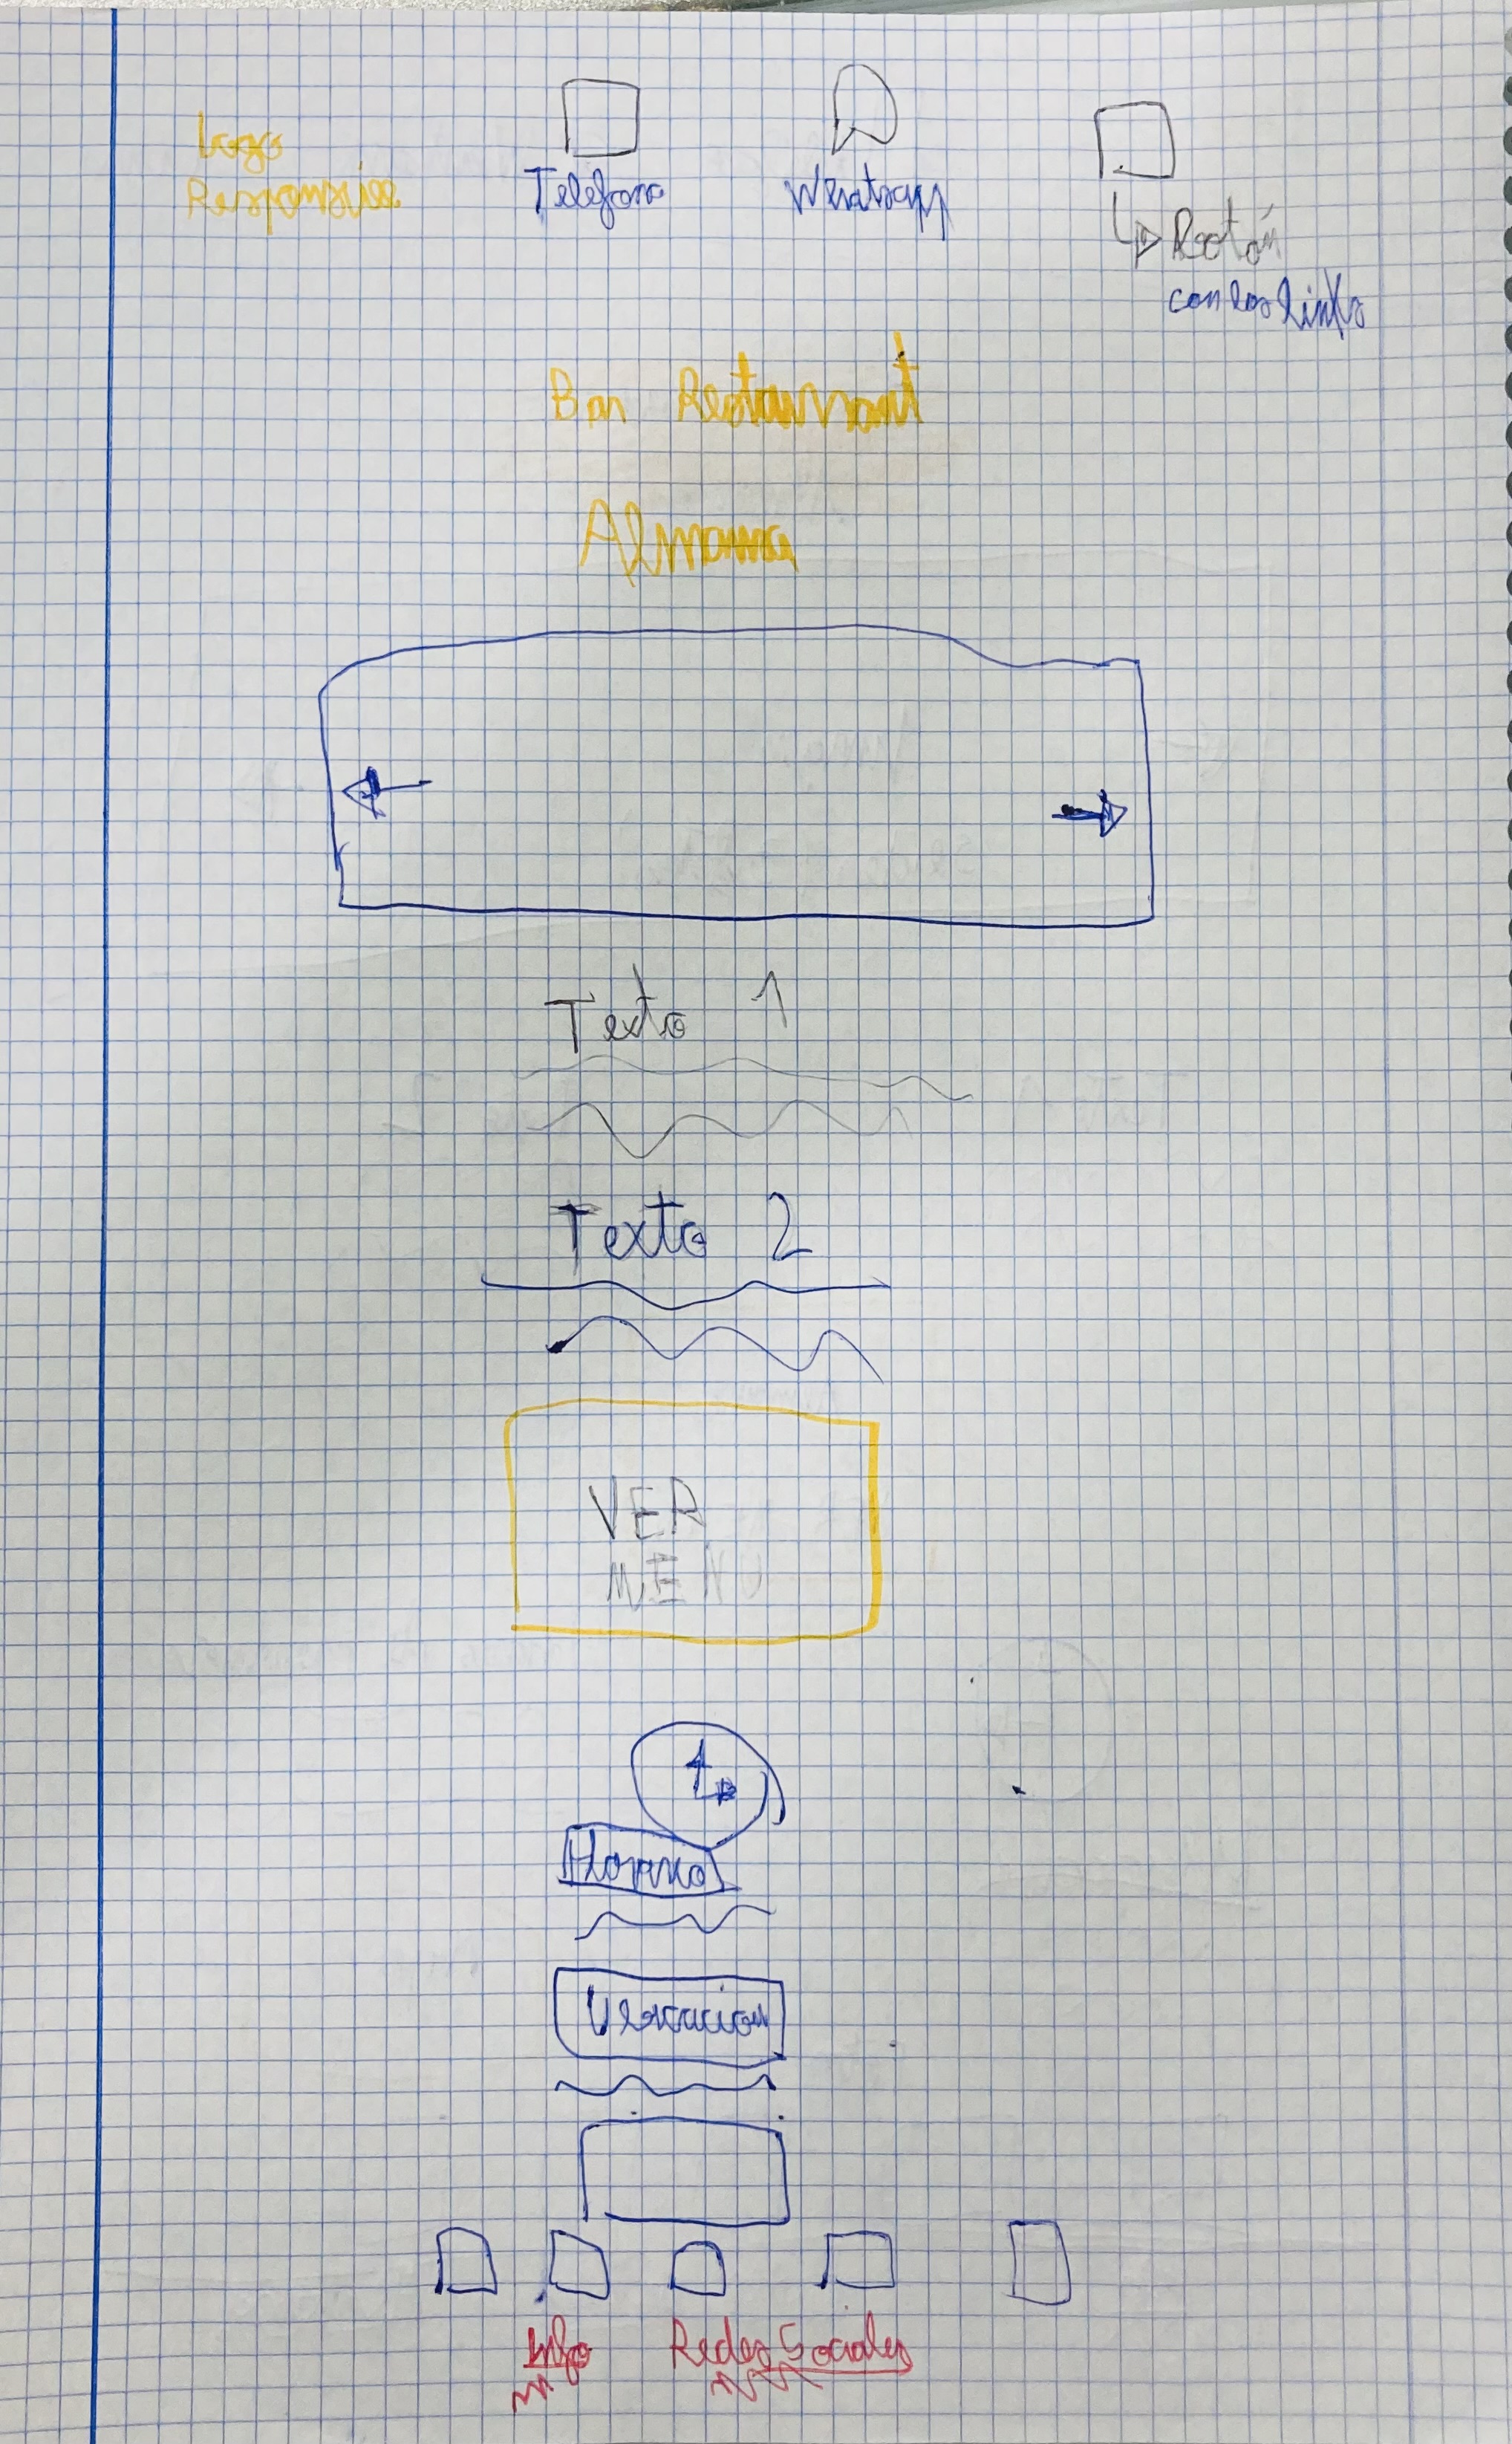 Logo
Responsive
Telefono
Whatsapp
Botón
con los links
Bar Restaurant
Texto 1
Texto 2
VER
MENU
Horario
Ubicacion
Info
Redes Sociales